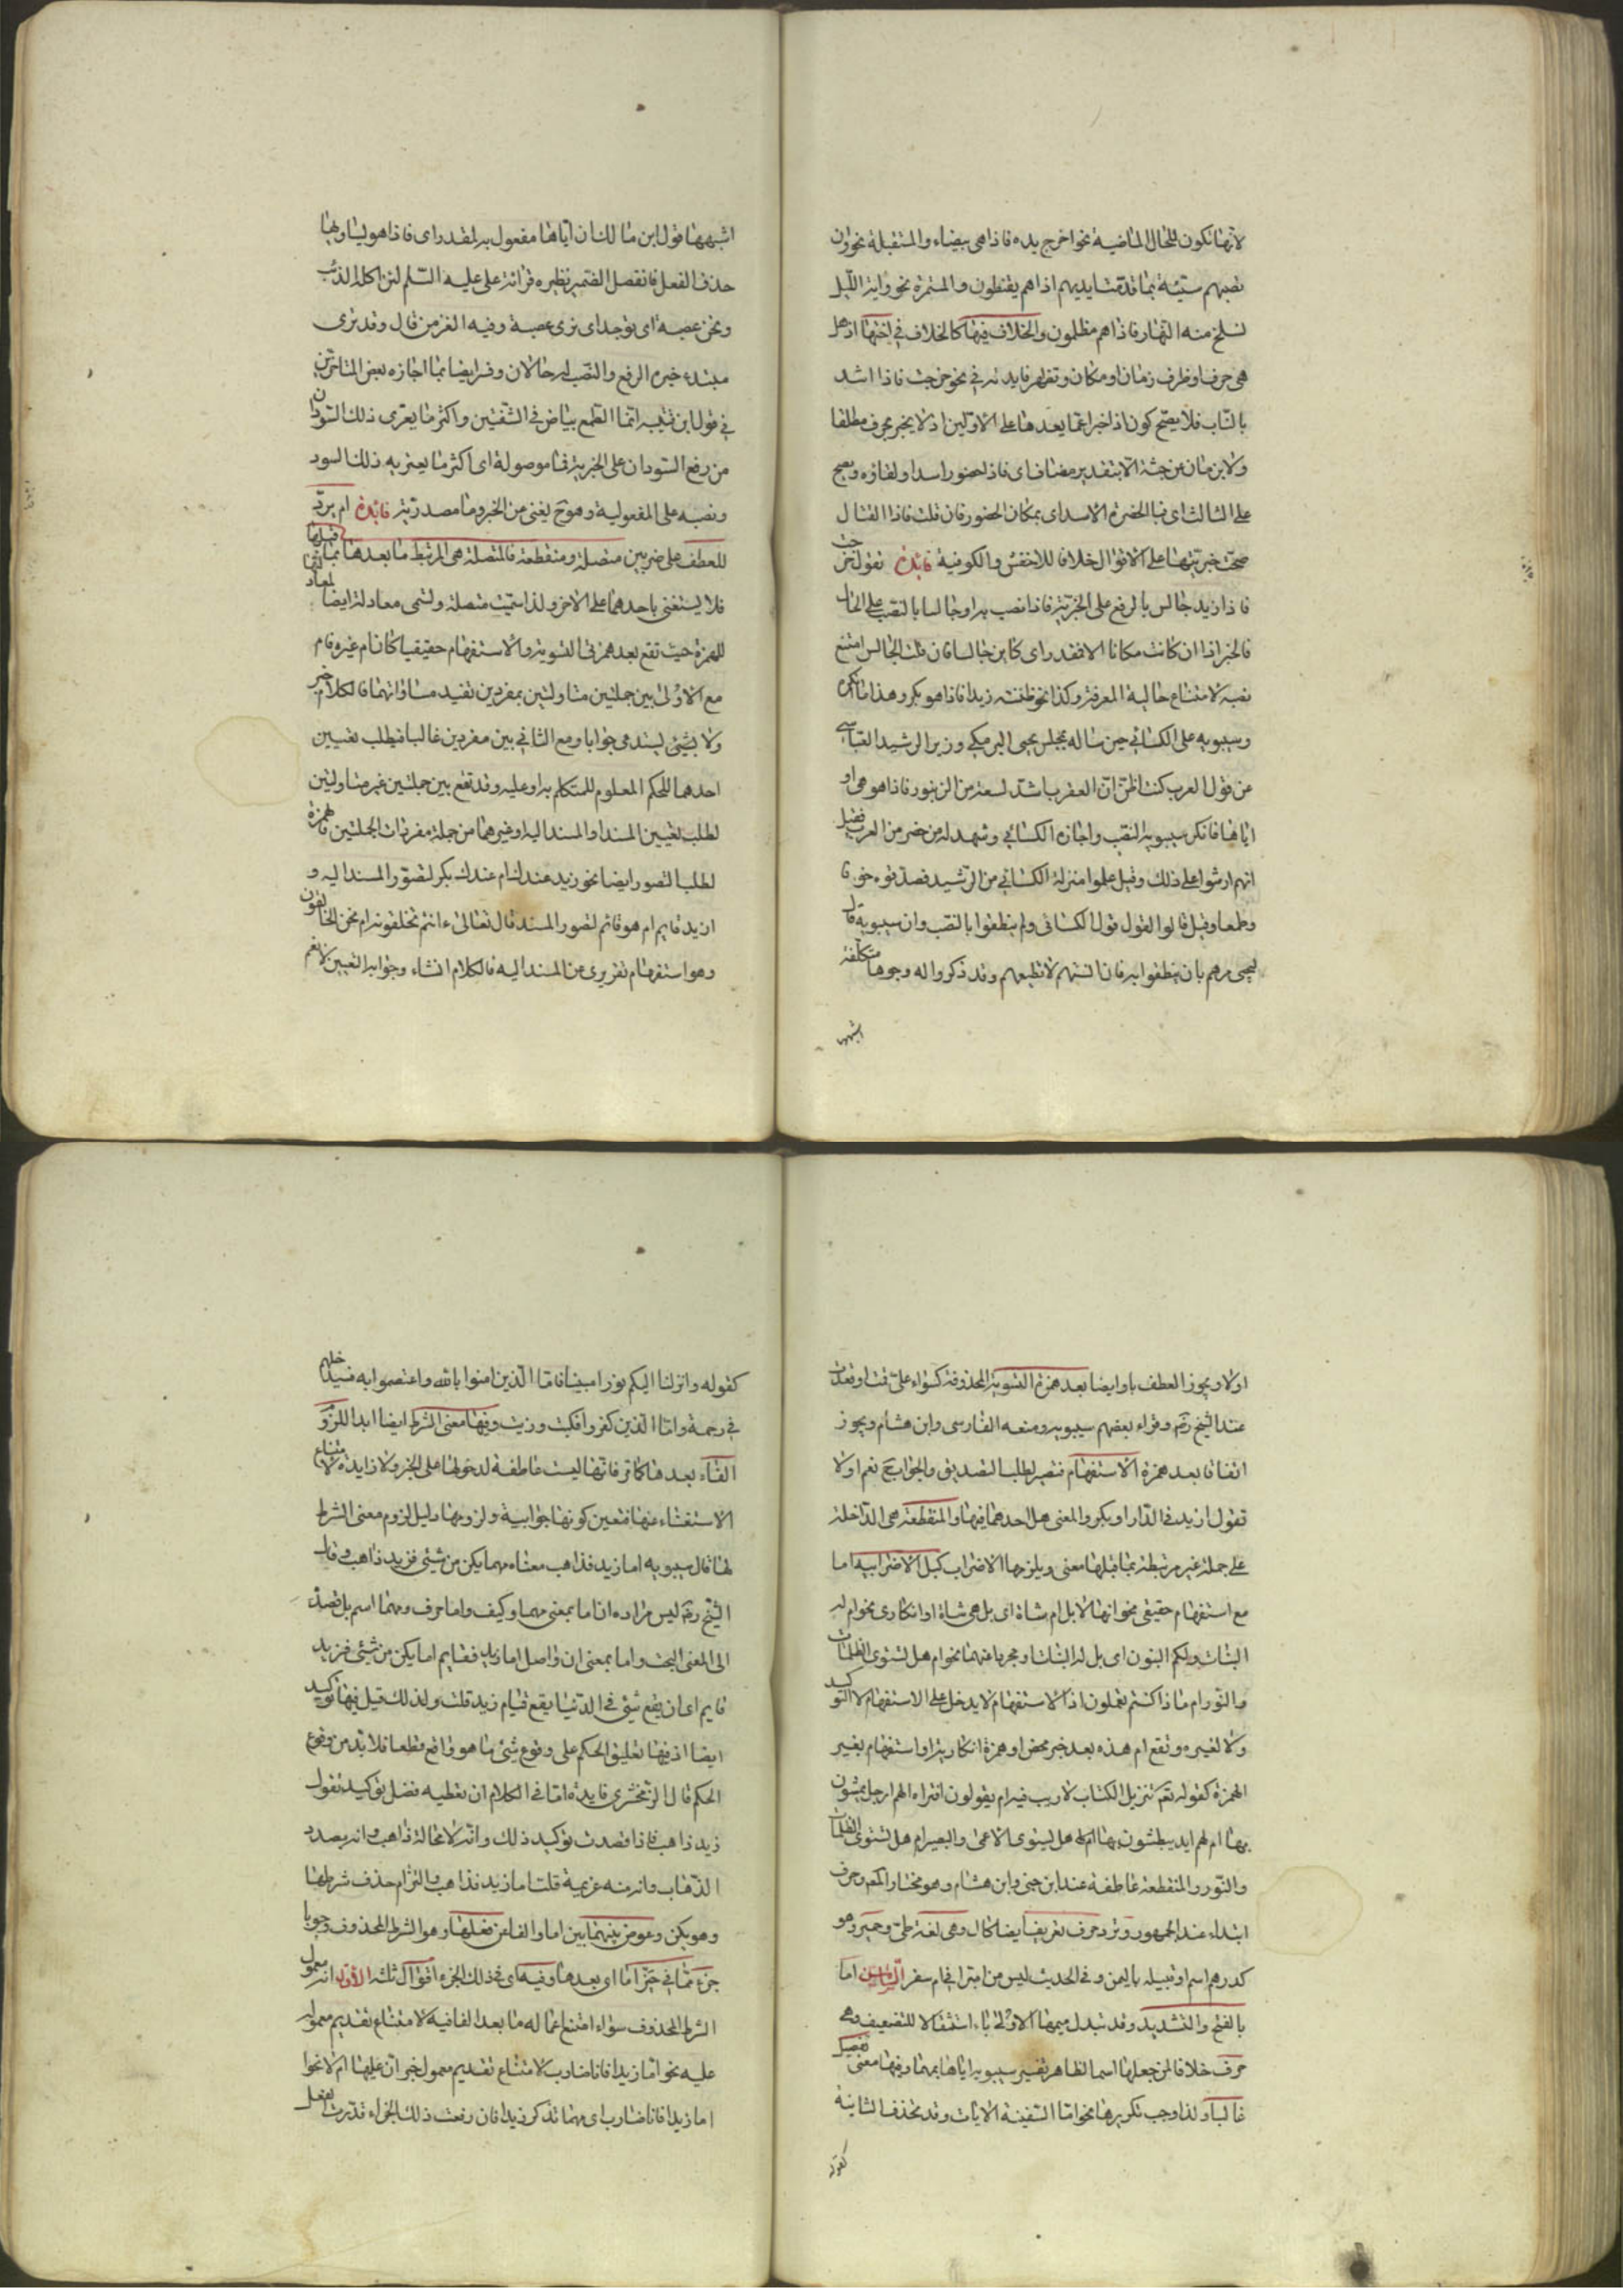 لانها تكون للحال الماضية نحو اخرج يده فاذا هى بيضاء والمستقبلة نحو وان
تصبهم سيئة بما قدمت ايديهم اذا هم يقنطون والمستمرة نحو واية الليل
نسلخ منه النهار فاذا هم مظلمون والخلاف فيها كالخلاف فى اختها اذ هل
هى حرف او ظرف زمان او مكان وتظهر فايدته فى نحو خرجت فاذا اسد
بالباب فلا يصح كون اذا خبرا عما بعدها على الاولين اذ لا يخبر بحرف مطلقا
ولا بزمان عن جثة الا بتقدير مضاف اى فاذا حضور اسد او لقاؤه ويصح
على الثالث اى فبالحضرة الاسد اى بمكان الحضور فان قلت فاذا القتال
صحت خبريتها على الاقوال خلافا للاخفش والكوفية فائدة تقول خرجت
فاذا زيد جالس بالرفع على الخبرية فاذا نصب به او جالسا بالنصب على الحال
فالخبر اذا ان كانت مكانا الا فقدر اى كاين جالسا فان قلت الجالس امتنع
نصبه لامتناع حالية المعرفة وكذا نحو ظننته زيدا فاذا هو بكر وهذا ما انكره
وسيبويه على الكسائى حين ساله بمجلس يحيى البرمكى وزير الرشيد العباسى
من قول العرب كنت اظن ان العقرب اشد لسعة من الزنبور فاذا هو هى او
اياها فانكر سيبويه النصب واجازه الكسائى وشهد له من حضر من العرب فقيل
انهم ارشوا على ذلك وقيل علموا منزلة الكسائى من الرشيد فصدقوه خوفا
وطمعا وقيل قالوا القول قول الكسائى ولم ينطقوا بالنصب وان سيبويه قال
ليحيى مرهم بان ينطقوا به فان السنتهم لا تطيعهم وقد ذكروا له وجوها متكلفة
اشبهها
اشبهها قول ابن مالك ان اياها مفعول به لمقدر اى فاذا هو يساويها
حذف الفعل فانفصل الضمير نظيره قرائة على عليه السلم لئن اكله الذئب
ونحن عصبة اى نوجد اى نرى عصبة وفيه الغز من قال وقد ترى
مبتدء خبره الرفع والنصب له حالان وفسر ايضا بما اجازه بعض المتاخرين
فى قول ابن قتيبه انما الطمع بياض فى الشفتين واكثر ما يعترى ذلك السودان
من رفع السودان على الخبرية فما موصولة اى اكثر ما يعتريه ذلك السود
ونصبه على المفعولية وهو ح يغنى عن الخبر وما مصدرية فائدة ام يرد
للعطف على ضربين متصلة ومنقطعة فالمتصلة هى المرتبط ما بعدها بما قبلها
فلا يستغنى باحدهما على الاخر ولذا سميت متصلة وتسمى معادلة ايضا لمعادلتها
للهمزة حيث تقع بعد همزتى التسوية والاستفهام حقيقيا كان ام غيره فام
مع الاولى بين جملتين متاولتين بمفردين تفيد مساواتهما فالكلام خبر
ولا بشئ يستدعى جوابا ومع الثانى بين مفردين غالبا فيطلب تعيين
احدهما للحكم المعلوم للمتكلم به او عليه وقد تقع بين جملتين غير متاولتين
لطلب تعيين المسند او المسند اليه او غيرهما من جملة مفردات الجملتين فالهمزة
لطلب التصور ايضا نحو زيد عندك ام عندك بكر لتصور المسند اليه و
ازيد قايم ام هو قائم لتصور المسند قال تعالى ءانتم تخلقونه ام نحن الخالقون
وهو استفهام تقريرى عن المسند اليه فالكلام انشاء وجوابه التعيين لا نعم
اولا ويجوز العطف باو ايضا بعد همزة التسوية المحذوفة كسواء على قمت او قعدت
عند الشيخ رضى وقراء بعضهم سيبويه ومنعه الفارسى وابن هشام ويجوز
اتفاقا بعد همزة الاستفهام فتصير لطلب التصديق والجواب ح نعم او لا
تقول ازيد فى الدار او بكر والمعنى هل احدهما فيها والمنقطعة هى الداخلة
على جملة غير مرتبطة بما قبلها معنى ويلزمها الاضراب كبل الاضرابيه اما
مع استفهام حقيقى نحو انها لابل ام شاة اى بل هى شاة او انكارى نحو ام له
البنات ولكم البنون اى بل له البنات او مجردا عنهما نحو ام هل تستوى الظلمات
والنور ام ماذا كنتم تعملون اذ الاستفهام لا يدخل على الاستفهام لا التوكيد
ولا لغيره وتقع ام هذه بعد خبر محض او همزة انكارية او استفهام بغير
الهمزة كقوله تعم تنزيل الكتاب لا ريب فيه ام يقولون افتراه الهم ارجل يمشون
بها ام لهم ايد يبطشون بها ام هل يستوى الاعمى والبصير ام هل تستوى الظلمات
والنور والمنقطعة عاطفة عند ابن جنى وابن هشام وهو مختار المعم وحرف
ابتداء عند الجمهور وترد حرف تعريف ايضا كال وهى لغة طى وحمير وهو
كدرهم اسم او قبيلة باليمن وفى الحديث ليس من امبر ام فى ام سفر اما
بالفتح والتشديد وقد تبدل ميمها الاولى ياء استثقالا للتضعيف وهى
حرف خلافا لمن جعلها اسما لظاهر تفسير سيبويه اياها بمهما وفيها معنى تفصيل
غالبا ولذا وجب تكريرها نحو اما السفينة الايات وقد تحذف الثانية
كقوله
كقوله وانزلنا اليكم نورا مبينا فاما الذين امنوا بالله واعتصموا به فسيدخلهم
فى رحمة واما الذين كفروا فكيت وزيت وفيها معنى الشرط ايضا ابدا للزو
الفاء بعدها كما تر فانها ليست عاطفة لدخولها على الخبر ولا زايدة لامتناع
الاستغناء عنها فتعين كونها جوابية ولزومها دليل لزوم معنى الشرط
لها قال سيبويه اما زيد فذاهب معناه مهما يكن من شئ فزيد ذاهب وقال
الشيخ رضى ليس مراده ان اما بمعنى مهما وكيف واما حرف ومهما اسم بل قصده
الى المعنى البحث واما بمعنى ان واصل اما زيد فقايم اما يكن من شئى فزيد
قايم اى ان يقع شئ فى الدنيا يقع قيام زيد قلت ولذلك قيل فيها توكيد
ايضا اذ فيها تعليق الحكم على وقوع شئ ما هو واقع قطعا فلا بد من وقوع
الحكم قال الزمخشرى فايدة اما فى الكلام ان تعطيه فضل توكيد تقول
زيد ذاهب فاذا قصدت توكيد ذلك وانه لا محالة ذاهب وانه بصدد
الذهاب وانه منه عزيمة قلت اما زيد فذاهب والتزام حذف شرطها
وهو يكن وعوض بينهما بين اما والفا من فعلها وهو الشرط المحذوف وجوبا
جزء مما فى حيز اما اى بعدها وفيه اى فى ذلك الجزء اقوال ثلثه الاول انه معمول
الشرط المحذوف سواء امتنع عماله ما بعد الفا فيه لامتناع تقديم معموله
عليه نحو اما زيدا فانا ضارب لامتناع تقديم معمول خبر ان عليها ام لا نحو
اما زيدا فانا ضارب اى مهما تذكر زيدا فان رفعت ذلك الجزاء قدرت لفعل